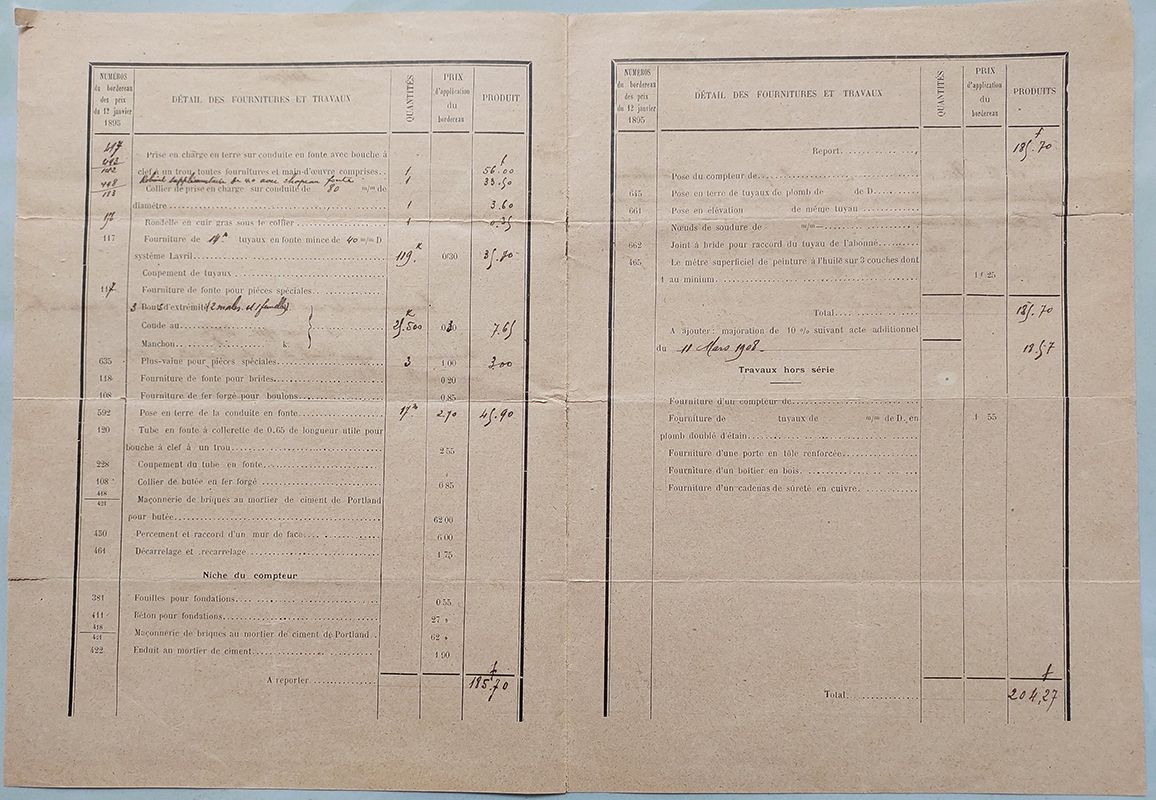 NUMÉROS
du bordereau
des prix
du 12 janvier
1895
DÉTAIL DES FOURNITURES ET TRAVAUX
QUANTITÉS
PRIX
d'application
du
bordereau
PRODUIT
417
Prise en charge en terre sur conduite en fonte avec bouche à
clef à un trou, toutes fournitures et main-d'œuvre comprises.. 1 56.00
Robinet supplémentaire de 40 avec chapeau fonte 1 33.50
183 Collier de prise en charge sur conduite de 80 m/m de
diamètre 1 3.60
97 Rondelle en cuir gras sous le collier 1 0.35
117 Fourniture de tuyaux en fonte mince de 40 m/m D
système Lavril 119.K 0.30 35.70
Coupement de tuyaux
117 Fourniture de fonte pour pièces spéciales
3 Bouts d'extrémité (2 males et 1 femelle)
Coude au 25.500 K 7.65
Manchon k.
635 Plus-value pour pièces spéciales 3 1 00 3.00
118 Fourniture de fonte pour brides 0 20
108 Fourniture de fer forgé pour boulons 0.85
592 Pose en terre de la conduite en fonte 17m 2.70 45.90
120 Tube en fonte à collerette de 0.65 de longueur utile pour
bouche à clef à un trou 2 55
228 Coupement du tube en fonte
108 Collier de butée en fer forgé 0 85
418
421 Maçonnerie de briques au mortier de ciment de Portland
pour butée 62 00
450 Percement et raccord d'un mur de face 6 00
461 Décarrelage et recarrelage 1 75
Niche du compteur
381 Fouilles pour fondations 0 55
411 Béton pour fondations 27 »
418
421 Maçonnerie de briques au mortier de ciment de Portland . 62 »
422 Enduit au mortier de ciment 1 90
A reporter 185.70
NUMÉROS
du bordereau
des prix
du 12 janvier
1895
DÉTAIL DES FOURNITURES ET TRAVAUX
QUANTITÉS
PRIX
d'application
du
bordereau
PRODUITS
Report 185.70
Pose du compteur de
645 Pose en terre de tuyaux de plomb de de D
661 Pose en élévation de même tuyau
Nœuds de soudure de m/m
662 Joint à bride pour raccord du tuyau de l'abonné
465 Le mètre superficiel de peinture à l'huile sur 3 couches dont
1 au minium 1 25
Total 185.70
A ajouter : majoration de 10 % suivant acte additionnel
du 11 Mars 1908 18.57
Travaux hors série
Fourniture d'un compteur de
Fourniture de tuyaux de m/m de D. en 1 55
plomb doublé d'étain
Fourniture d'une porte en tôle renforcée
Fourniture d'un boitier en bois
Fourniture d'un cadenas de sûreté en cuivre
Total 204,27